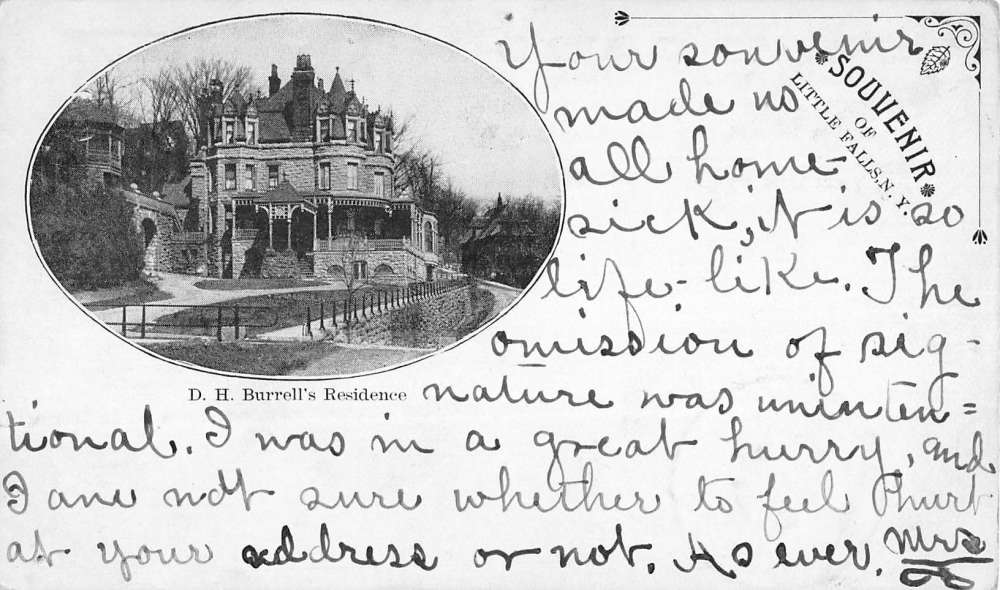 SOUVENIR
OF
LITTLE FALLS, N. Y.
D. H. Burrell's Residence
Your souvenir
made us
all home-
sick, it is so
life-like. The
omission of sig-
nature was uninten=
tional. I was in a great hurry, and
I am not sure whether to feel hurt
at your address or not. As ever, Mrs